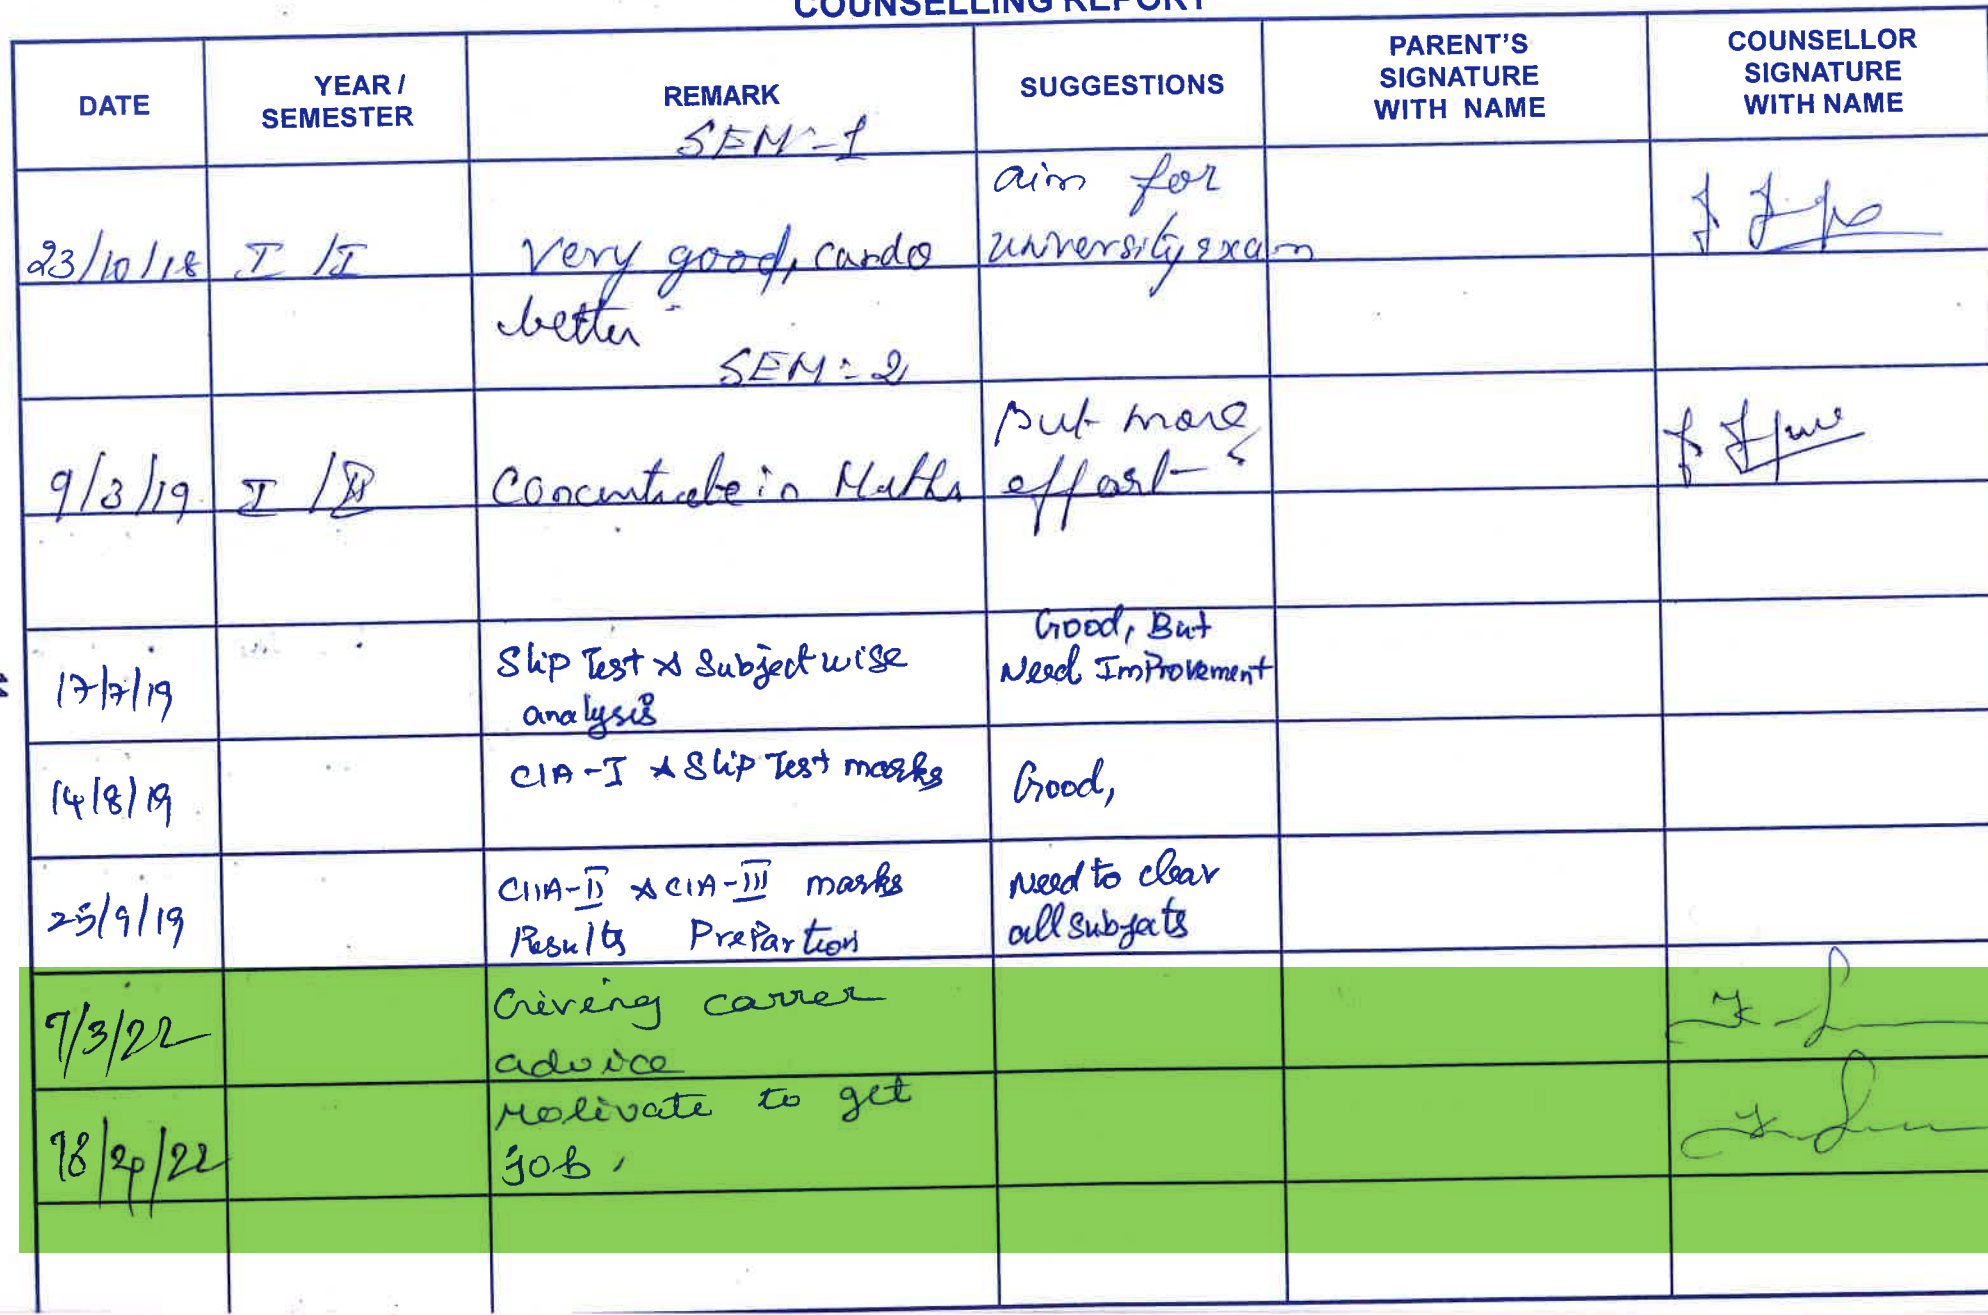 COUNSELLING REPORT
DATE
YEAR /
SEMESTER
REMARK
SUGGESTIONS
PARENT'S
SIGNATURE
WITH NAME
COUNSELLOR
SIGNATURE
WITH NAME
SEM:-1
23/10/18 I /I very good, can do
better
aim for
university exam
SEM:2
9/3/19 I /II Concentrate in Maths
Put more
effort
17/7/19
Slip Test & Subject wise
analysis
Good, But
Need Improvement
14/8/19
CIA-I & Slip Test marks
Good,
25/9/19
CIIA-II & CIA-III marks
Results Prepartion
Need to clear
all subjects
7/3/22
Giving carrer
advice
18/4/22
Motivate to get
job,